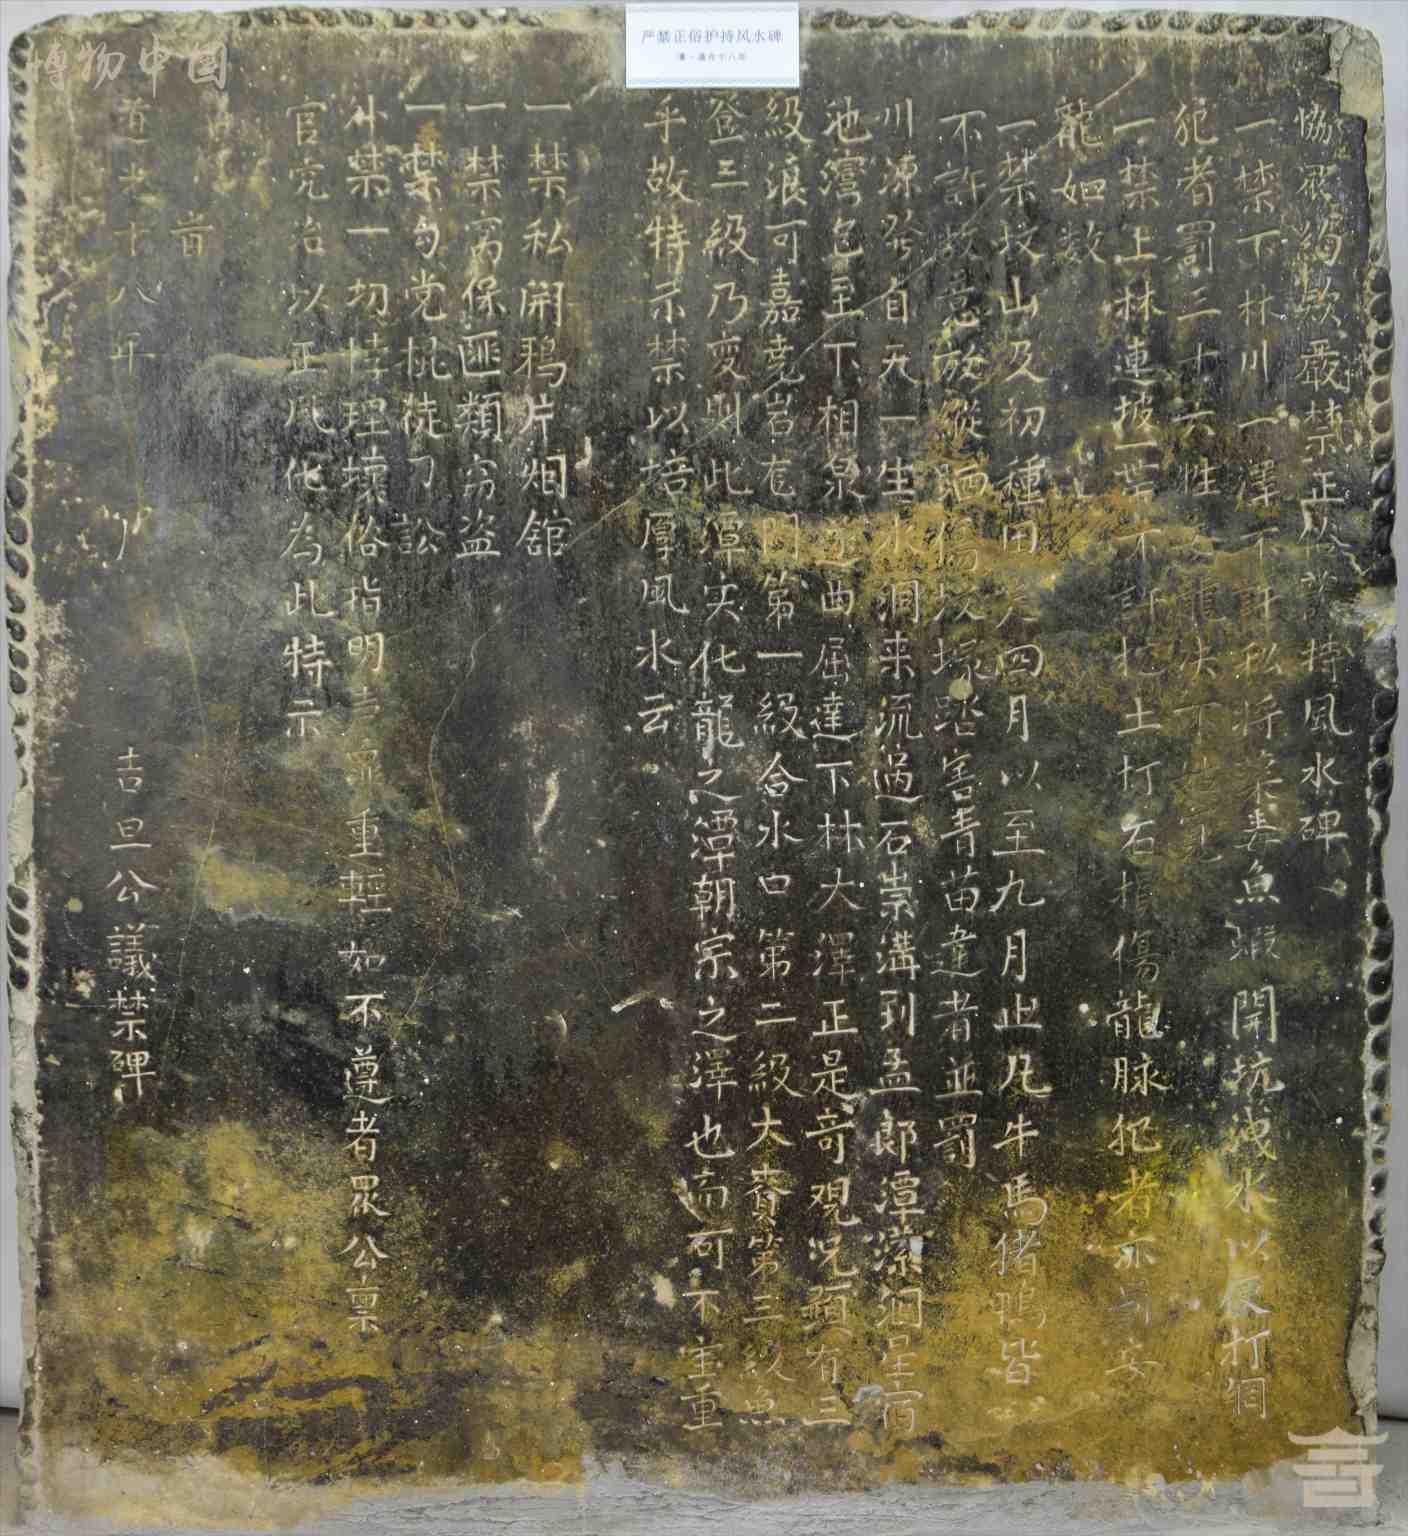 严禁正俗护持风水碑
清·道光十八年
博物中国
協眾絇欵嚴禁正俗護持風水碑
一禁下林川一澤不許私將藥毒魚蝦開坑洩水以及打網
犯者罰三十六牲
一禁上林連坡一帶不許挖土打石損傷龍脉犯者亦罰安
龍如数
一禁坟山及初種田美四月以至九月止凡牛馬猪鴨皆
不許故意放縱晒傷坟塚踏害青苗違者並罰
川源發自天一生水洞来流過石崇溝到孟郎潭瀠洄星宿
池灣包至下相泉逆曲屈達下林大澤正是竒观况頭有三
級浪可嘉堯岩尨門第一級合水口第二級大賽第三級魚
登三級乃变則此潭实化龍之潭朝宗之澤也而可不宝重
乎故特示禁以培厚風水云
一禁私開鴉片烟舘
一禁窩保匪類窃盗
一禁勾党桃徒刀訟
外禁一切悖理壞俗指明言罪重輕如不遵者眾公稟
官究治以正風化為此特示
首
道光十八年 月 吉旦公議禁碑